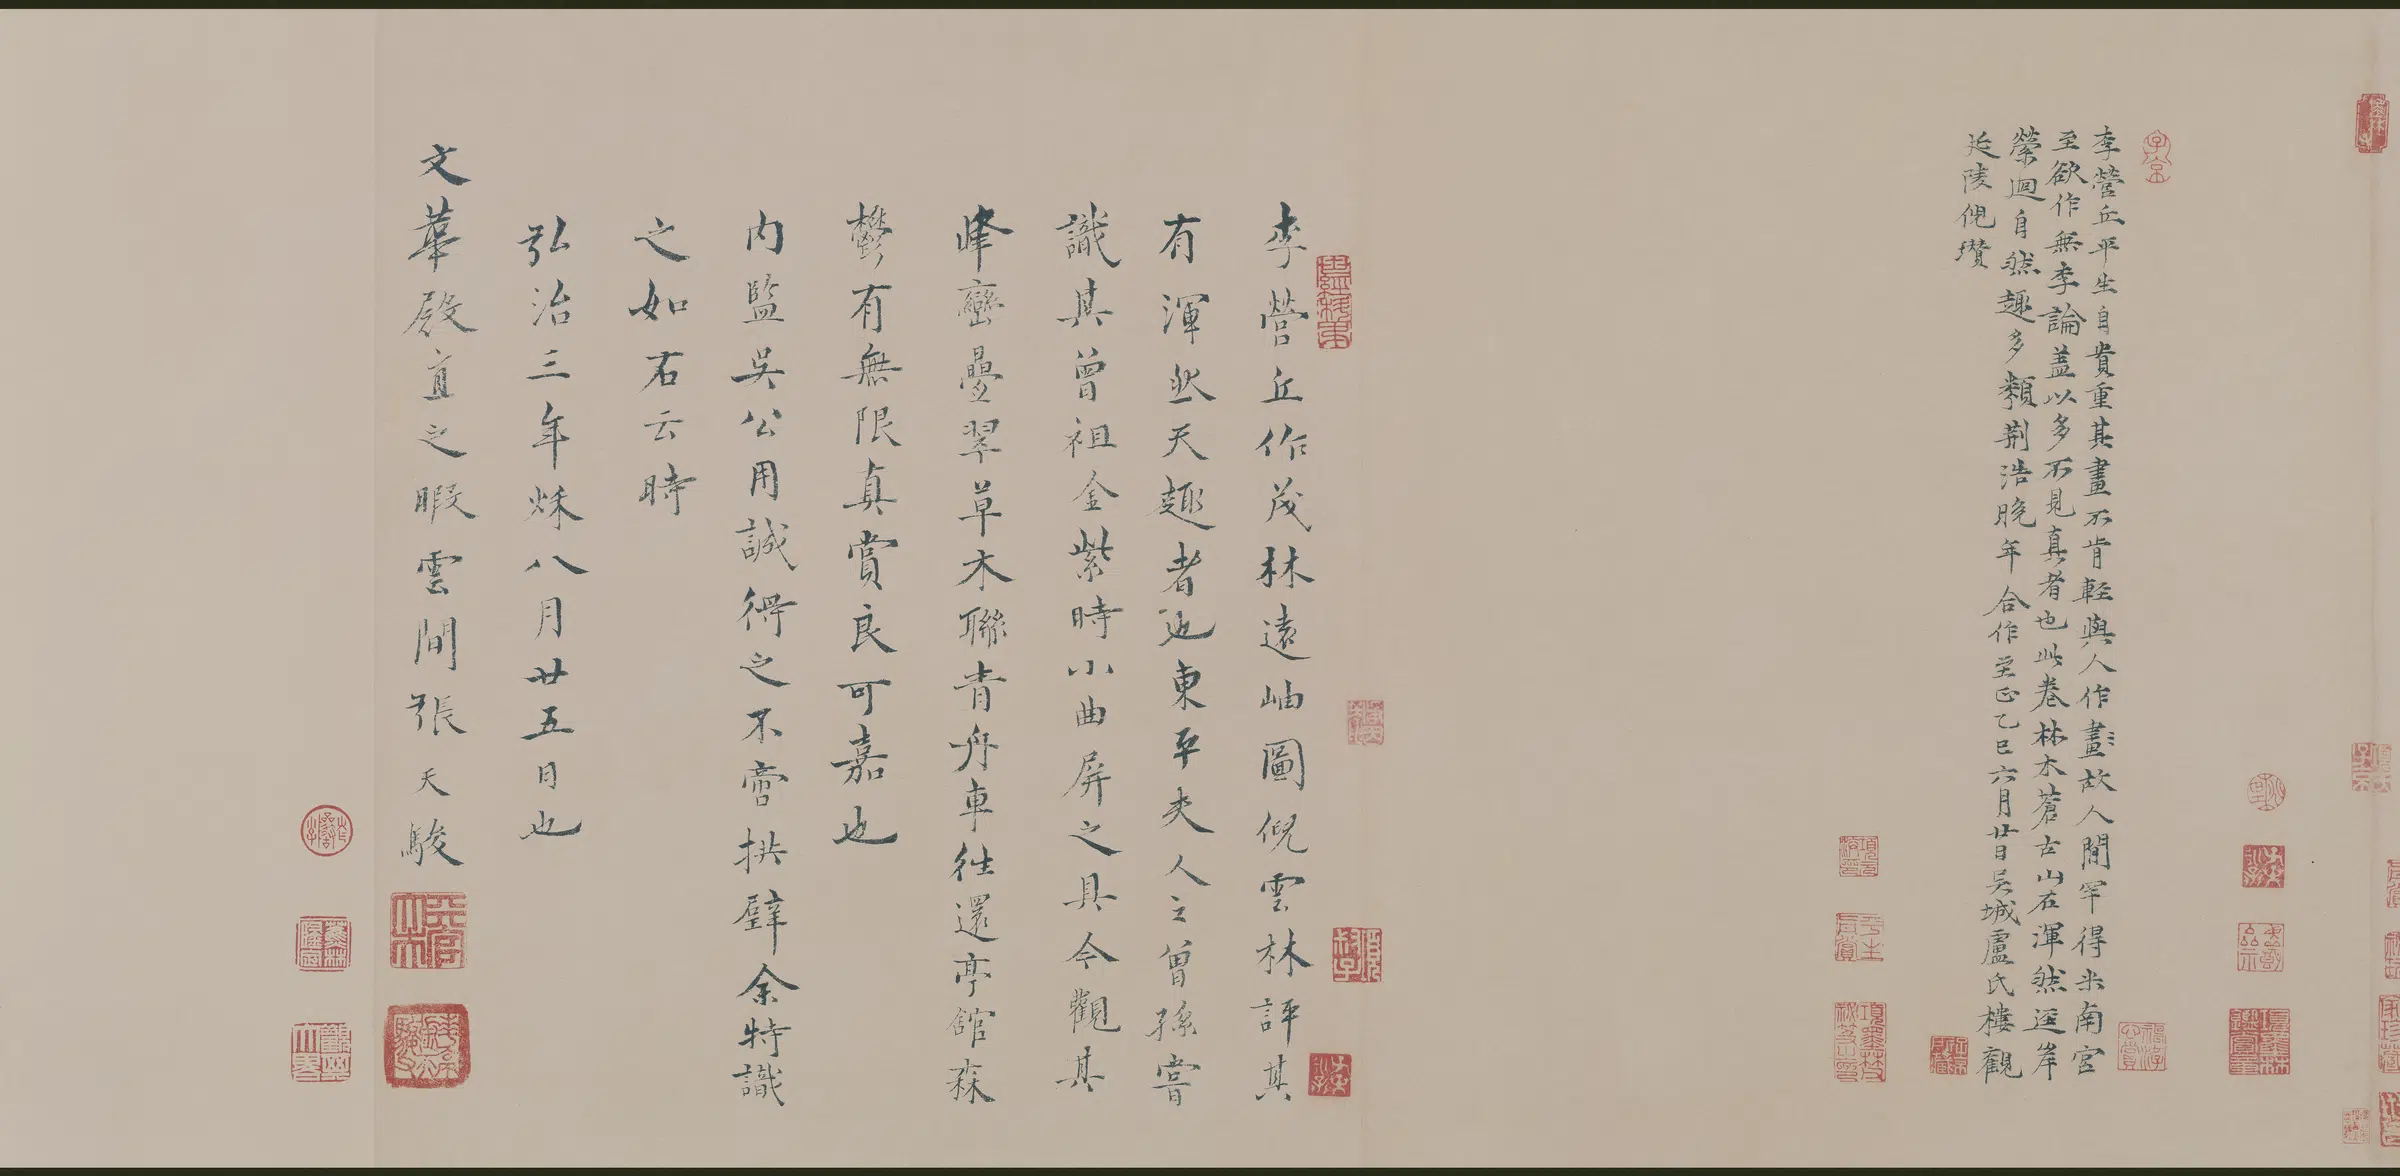 李營丘平生自貴重其畫不肯輕與人作畫故人間罕得米南宮
至欲作無李論蓋以多不見真者也此卷林木蒼古山石渾然逕岸
縈迴自然趣多類荊浩晚年合作至正乙巳六月廿日吳城盧氏樓觀
延陵倪瓚
李營丘作茂林遠岫圖倪雲林評其
有渾然天趣者也東平夫人之曾孫嘗
識其曾祖金紫時小曲屏之具今觀其
峰巒疊翠草木聯青舟車往還亭館森
鬱有無限真賞良可嘉也
內監吳公用誠得之不啻拱璧余特識
之如右云時
弘治三年秌八月廿五日也
文華殿直之暇雲間張天駿
子京